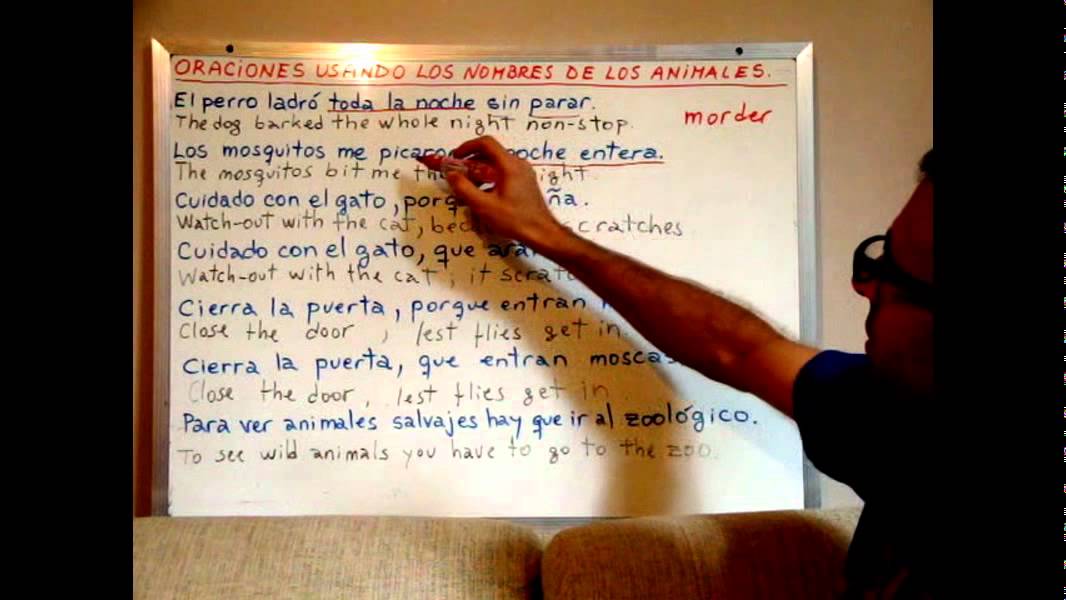 ORACIONES USANDO LOS NOMBRES DE LOS ANIMALES.
El perro ladró toda la noche sin parar.
The dog barked the whole night non-stop.
morder
Los mosquitos me noche entera.
The mosquitos bit me
Cuidado con el gato,
Watch-out with the cat, scratches
Cuidado con el gato, que
Watch-out with the cat, it
Cierra la puerta, porque entran
Close the door, lest flies get in.
Cierra la puerta, que entran moscas
Close the door, lest flies get in
Para ver animales salvajes hay que ir al zoológico.
To see wild animals you have to go to the zoo.